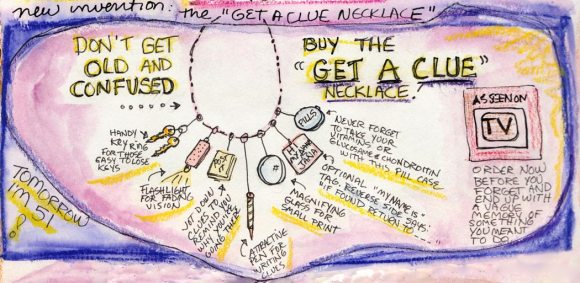 new invention: the "GET A CLUE NECKLACE"
DON'T GET
OLD AND
CONFUSED
BUY THE
"GET A CLUE"
NECKLACE!
HANDY
KEY RING
FOR THOSE
EASY TO LOSE
KEYS
FLASHLIGHT
FOR FADING
VISION
JOT DOWN
CLUES TO
REMIND YOU
WHY YOU'RE
GOING THERE
ATTRACTIVE
PEN FOR
WRITING
CLUES
MAGNIFYING
GLASS FOR
SMALL PRINT
OPTIONAL "MY NAME IS"
TAG, REVERSE SIDE SAYS:
"IF FOUND RETURN TO
NEVER FORGET
TO TAKE YOUR
VITAMINS OR
GLUCOSAMINE & CHONDROITIN
WITH THIS PILL CASE
PILLS
HI
MY NAME
JANA
AS SEEN ON
TV
ORDER NOW
BEFORE YOU
FORGET AND
END UP WITH
A VAGUE
MEMORY OF
SOMETHING
YOU MEANT
TO DO
TOMORROW
I'M 51